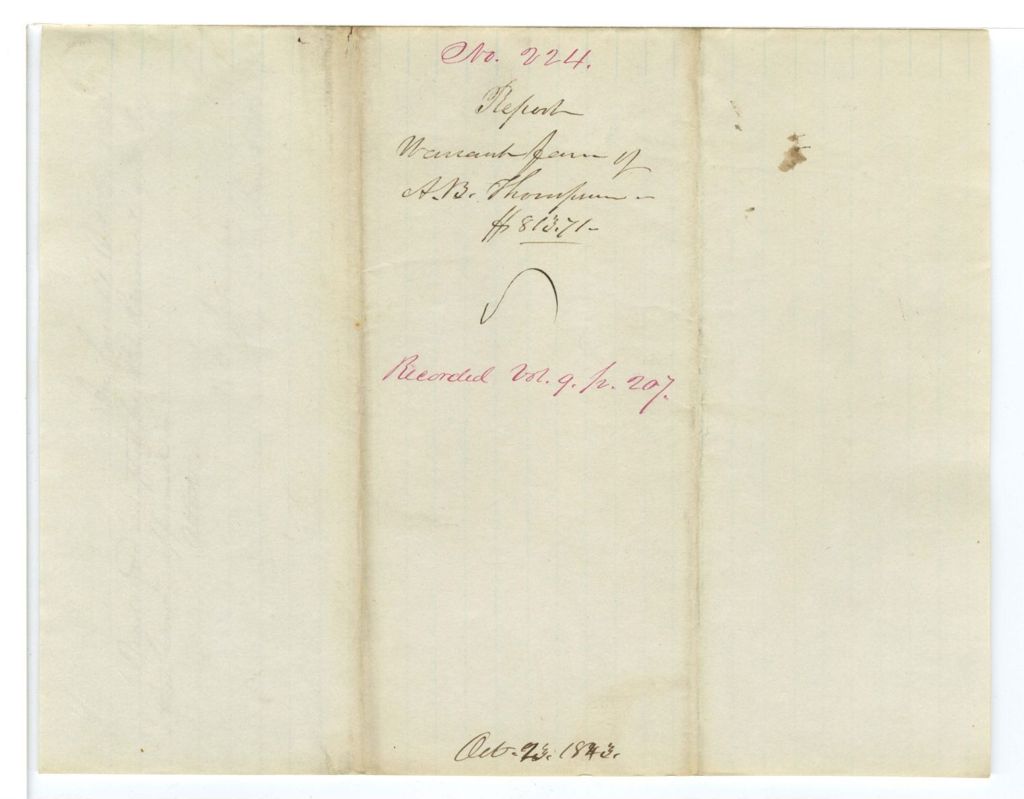 No. 224.
Report
Warrant favor of
A. B. Thompson –
$813.71 –
Recorded Vol. 9. p. 207.
Oct. 23. 1843.